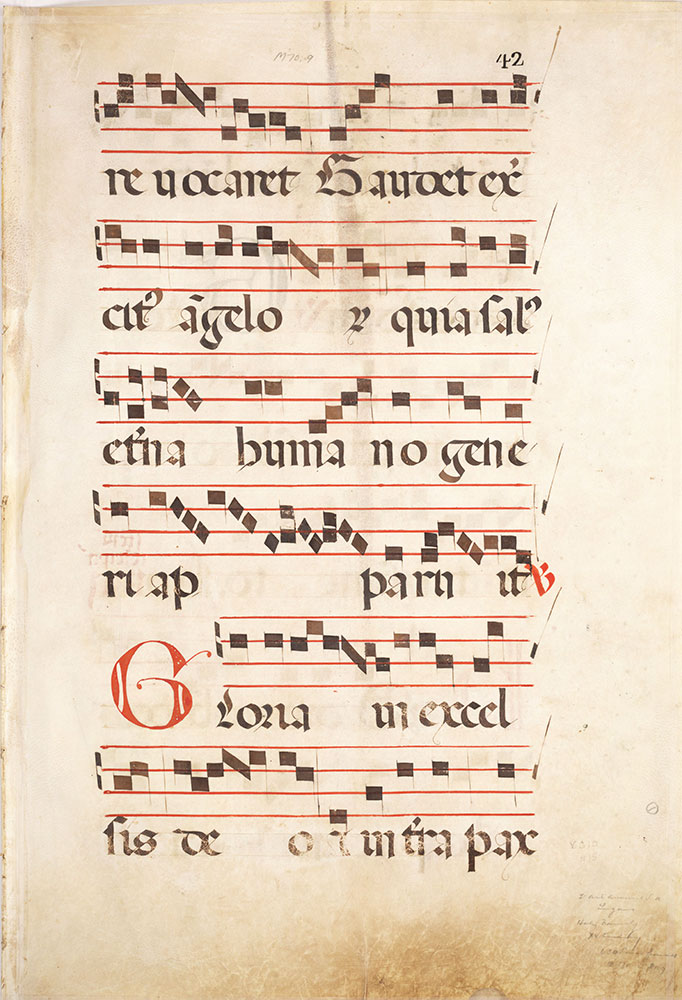 M 70.9
42
re uocaret Gaudet ex̄
citꝰ āgelo ⁊ quia salꝰ
et̄na huma no gene
ri ap paru it ℣
Gloria in excel
sis de o ⁊ in t̄ra pax